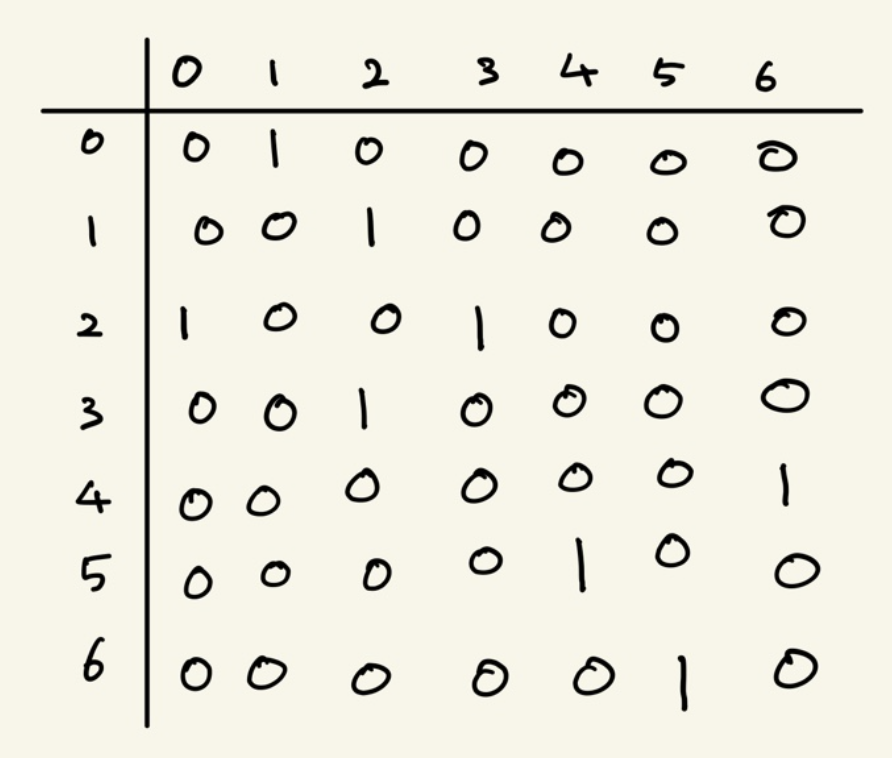 0 1 2 3 4 5 6
0 0 1 0 0 0 0 0
1 0 0 1 0 0 0 0
2 1 0 0 1 0 0 0
3 0 0 1 0 0 0 0
4 0 0 0 0 0 0 1
5 0 0 0 0 1 0 0
6 0 0 0 0 0 1 0